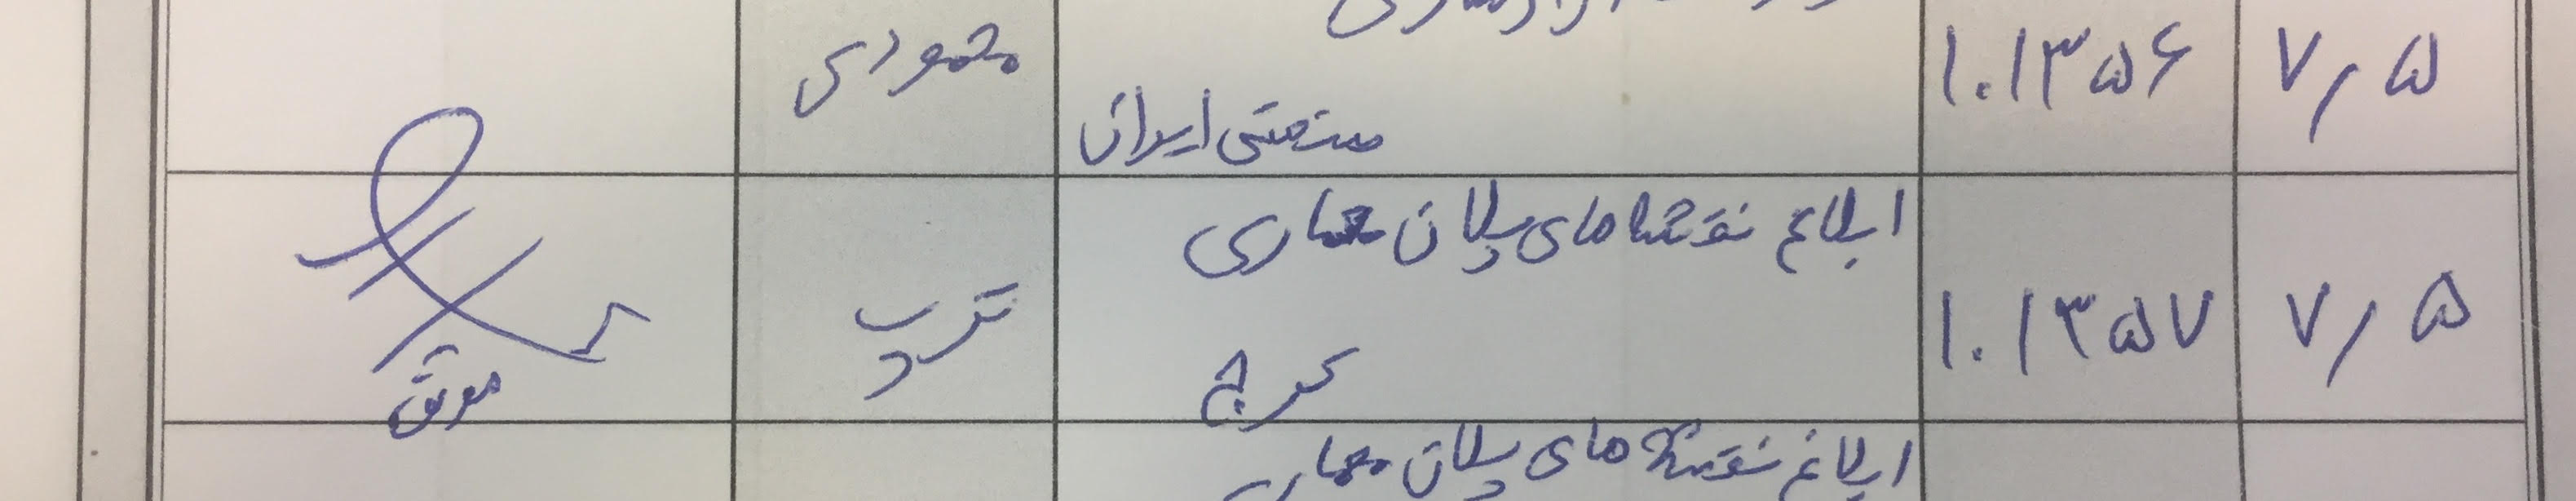 ۷/۵
۱۰۱۳۵۶
صنعتی ایران
محمودی
۷/۵
۱۰۱۳۵۷
ابلاغ نقشه های پلان معماری
کرج
موثق
ابلاغ نقشه های پلان معماری